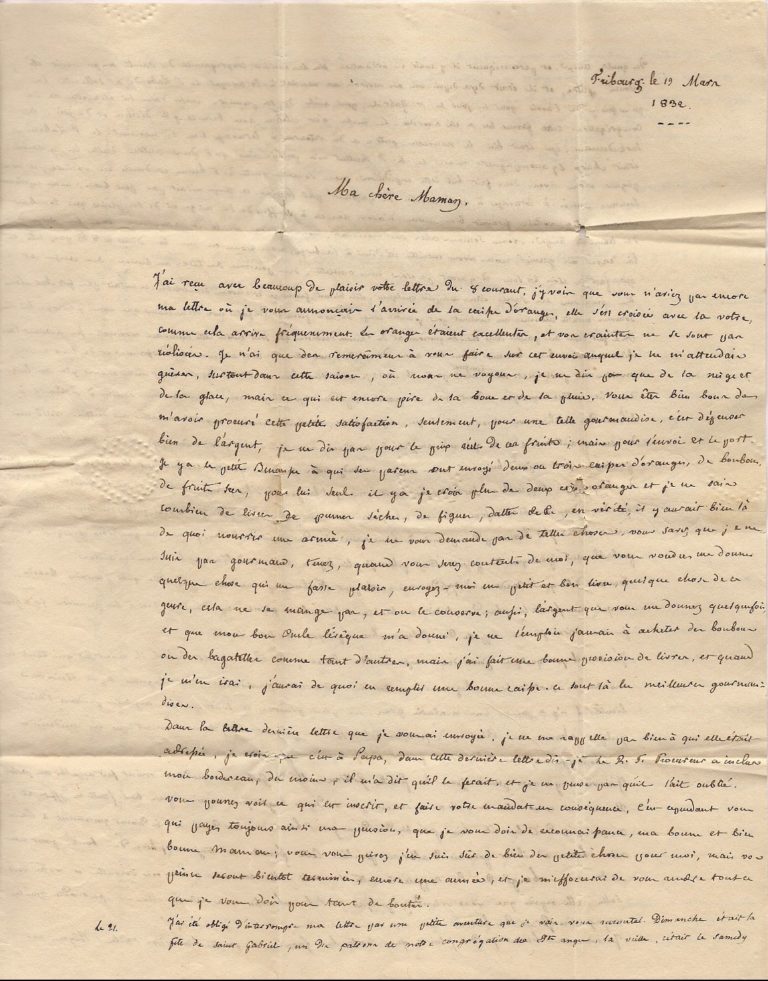 Fribourg le 19 Mars
1832.
Ma chère Maman,
J'ai reçu avec beaucoup de plaisir votre lettre du 8 courant, j'y vois que vous n'aviez pas encore
ma lettre où je vous annonçais l'arrivée de la caisse d'oranges, elle s'est croisée avec la votre,
comme cela arrive fréquemment. Les oranges étaient excellentes, et vos craintes ne se sont pas
réalisées. Je n'ai que des remerciemens à vous faire sur cet envoi auquel je ne m'attendais
guères, surtout dans cette saison, où nous ne voyons, je ne dis pas que de la neige et
de la glace, mais ce qui est encore pire de la boue et de la pluie. Vous êtes bien bonne de
m'avoir procuré cette petite satisfaction, seulement, pour une telle gourmandise, c'est dépenser
bien de l'argent, je ne dis pas pour le prix de ces fruits; mais pour l'envoi et le port.
Il y a le petit à qui ses parens ont envoyé deux ou trois caisses d'oranges, de bonbons,
de fruits secs, pour lui seul il y a je crois plus de deux cens oranges et je ne sais
combien de livres de prunes sèches, de figues, dattes &c &c, en vérité, il y aurait bien là
de quoi nourrir une armée, je ne vous demande pas de telles choses, vous savez que je ne
suis pas gourmand, tenez, quand vous serez contents de moi, que vous voudrez me donner
quelque chose qui me fasse plaisir, envoyez-moi un petit et bon livre, quelque chose de ce
genre, cela ne se mange pas, et on le conserve; aussi, l'argent que vous me donnez quelquefois,
et que mon bon Oncle l'évêque m'a donné, je ne l'emploie jamais à acheter des bonbons
ou des bagatelles comme tant d'autres, mais j'ai fait une bonne provision de livres, et quand
je m'en irai, j'aurai de quoi en remplir une bonne caisse. ce sont là les meilleures gourman-
dises.
Dans la lettre dernière lettre que je vous ai envoyée, je ne me rappelle pas bien à qui elle était
adressée, je crois que c'est à Papa, dans cette dernière lettre dis-je le R. P. Procureur a inclus
mon bordereau, du moins, il m'a dit qu'il le ferait, et je ne pense pas qu'il l'ait oublié.
vous pourrez voir ce qui est inscrit, et faire votre mandat en conséquence, C'est cependant vous
qui payez toujours ainsi ma pension, que je vous dois de reconnaissance, ma bonne et bien
bonne Maman; vous vous privez j'en suis sûr de bien des petites choses pour moi, mais vos
peines seront bientôt terminées, encore une année, et je m'efforcerai de vous rendre tout ce
que je vous dois pour tant de bontés.
le 21. J'ai été obligé d'interrompre ma lettre par une petite aventure que je vais vous raconter. Dimanche était la
fête de saint Gabriel, un des patrons de notre congrégation des Sts anges, la veille, c'était le samedy